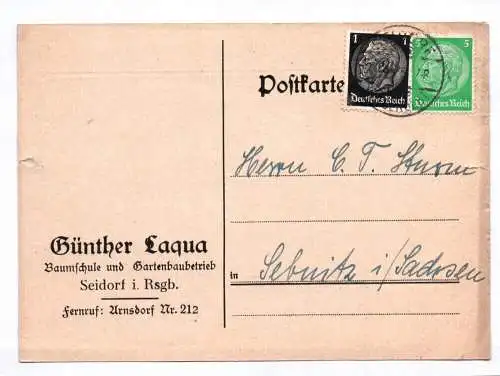 Postkarte
1 1
Deutsches Reich
5 5
Deutsches Reich
Herrn C. T. Sturm
Günther Laqua
Baumschule und Gartenbaubetrieb
Seidorf i. Rsgb.
Fernruf: Arnsdorf Nr. 212
in Sebnitz i/Sachsen